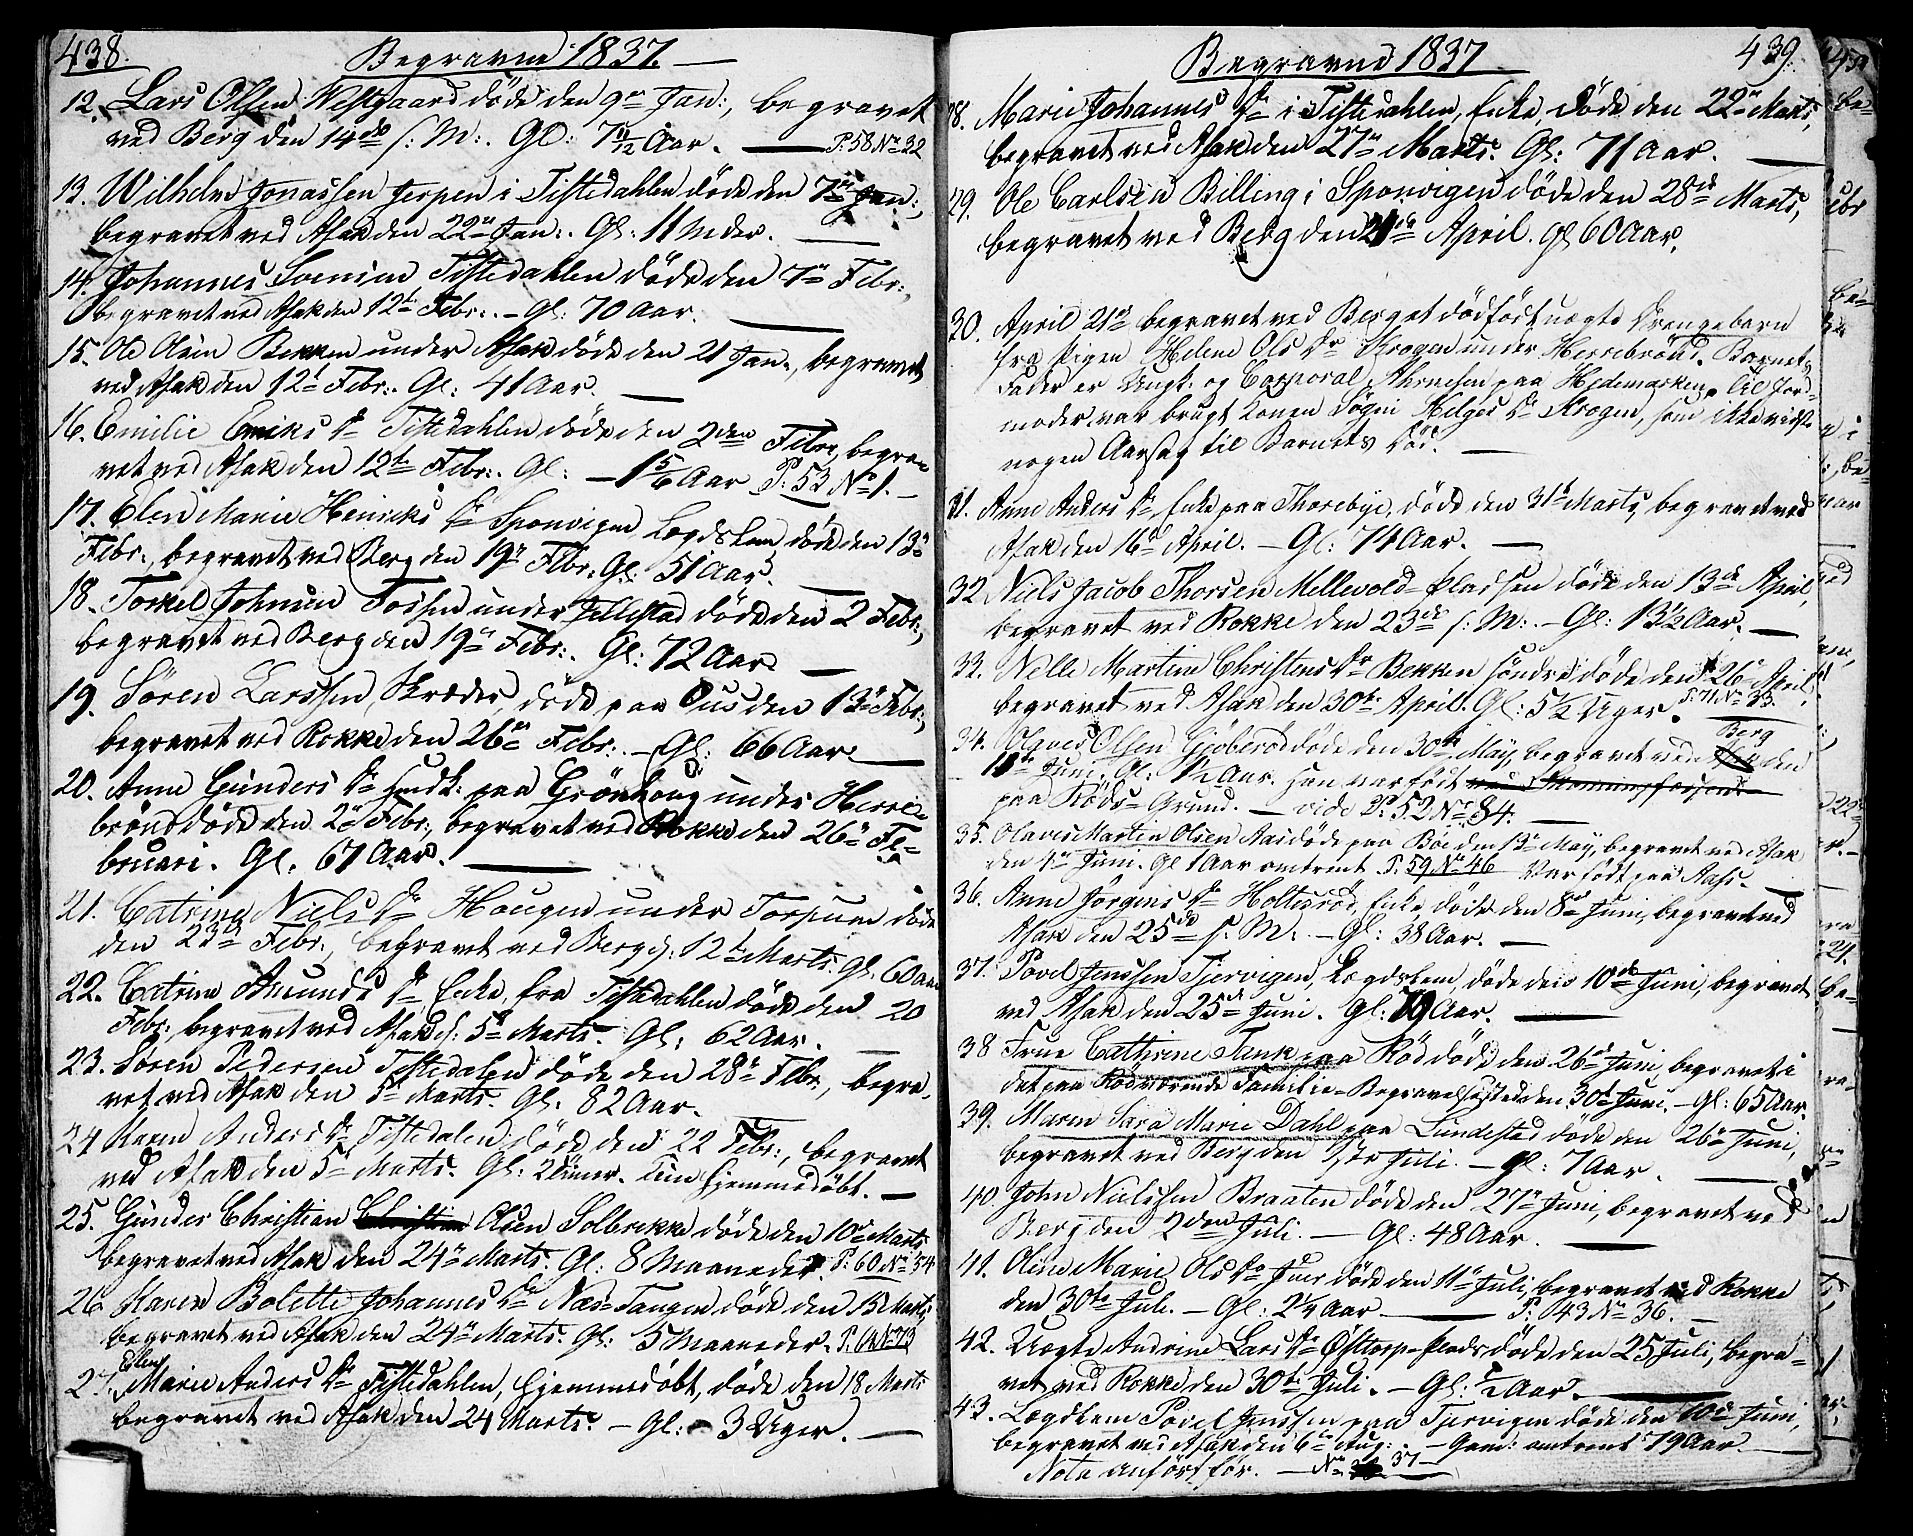 438.
Begravne 1837.
12. Lars Olsen Vestgaard døde den 9de Jan:, begravet
ved Berg den 14de s: M: Gl: 7 11/12 Aar. P. 58 No 32
13. Wilhelm Jonassen Jerpen i Tistedahlen døde den 7de Jan:,
begravet ved Asak den 22de Jan:. Gl: 11 Mdr.
14. Johannes Tistedahlen døde den 7de Febr:,
begravet ved Asak den 12te Febr:. - Gl: 70 Aar.
15. Ole Olsen Bekken under Asak døde den 21 Jan:, begravet
ved Asak den 12te Febr:. Gl: 41 Aar.
16. Emilie Eriks Dr Tistedahlen døde den 2den Febr:, begra-
vet ved Asak den 12te Febr:. Gl: - 1 5/6 Aar P: 53 No 1. -
17. Elen Marie Henriks Dr Sponvigen Logdslem døde den 13de
Febr:, begravet ved Berg den 19de Febr:. Gl: 51 Aar.
18. Torkel Johnsen Fossen under døde den 2 Febr:,
begravet ved Berg den 19de Febr:. Gl: 72 Aar.
19. Søren Larssen, Skræder, døde paa Buer den 13de Febr:,
begravet ved Rokke den 26de Febr:. - Gl: 66 Aar.
20. Anne Gunders Dr Huusk: paa Grønhoug under Herre-
brønd døde den 2de Febr:, begravet ved Rokke den 26de Fe-
bruari. Gl: 67 Aar.
21. Catrine Niels Dr Hougen under Torpum døde
den 23de Febr:, begravet ved Berg d: 12te Marts. Gl: 60 Aar
22. Catrine Amunds Dr Enke, fra Tistedahlen døde den 20
Febr:, begravet ved Asak d: 5te Marts. Gl: 62 Aar.
23. Søren Pedersen Tistedalen døde den 28de Febr:, begra-
vet ved Asak den 5te Marts. Gl: 82 Aar.
24 Karen Anders Dr Tistedalen døde den 22 Febr:, begravet
ved Asak den 5te Marts. Gl: 2 Timer. Kun hjemmedøbt. -
25. Gunder Christian Christian Olsen Solbrekke døde den 10de Marts,
begravet ved Asak den 24de Marts. Gl: 8 Maaneder. P: 60 No 54
26 Karen Bolette Johannes Dr Næs-Tangen døde den Marts,
begravet ved Asak den 24de Marts. Gl: 5 Maaneder. P. No 73
Elen
27. Marie Anders Dr Tistedahlen, hjemmedøbt, døde den 18 Marts
begravet ved Asak den 24 Marts. - Gl: - 3 Uger.
Begravne 1837
439.
28. Marie Johannes Dr i Tistedahlen, Enke, døde den 22de Marts,
begravet ved Asak den 27de Marts. Gl: 71 Aar.
29. Ole Carlsen Billing i Sponvigen døde den 28de Marts,
begravet ved Berg den April. Gl 60 Aar.
30. April 21de begravet ved Berg et dødfødt uægte Drengebarn
fra Pigen Helene Ols Dr Krogen under Herrebrønd. Barnets
Fader er Ungk: og Corporal Ahrnesen paa Hedemarken. Til Jord-
moder var brugt Konen Sogni Helges Dr Krogen, som ikke vidste
nogen Aarsag til Barnets Død.
31. Anne Anders Dr Enke paa Thorebye, døde den 31te Marts, begravet ved
Asak den 16de April. - Gl: 74 Aar.
32 Niels Jacob Thorsen Mellevold-Pladsen døde den 13de April,
begravet ved Rokke den 23de s: M:. - Gl: 13 1/2 Aar.
33. Nelle Martine Christens Dr Bekken søndre døde den 26de April,
begravet ved Asak den 30te April. Gl: 5 1/2 Uger. P. 71 No 33.
34. Olsen Gjøberød døde den 30te May, begravet ved Berg den
Juni. Gl: 1 1/2 Aar. Han var født
paa Røds-Grund. - vide P. 52 No 84.
35. Olaves Martin Olsen Aas døde paa Bøe den 13de May, begravet ved Asak
den 4de Juni. Gl 1 Aar omtrent P. 59 No 46 Var født paa Aas.
36. Anne Jørgens Dr Holtesrød, Enke, døde den 8de Juni, begravet ved
Asak den 25de s: M:. - Gl: 38 Aar.
37. Povel Jenssen Tjervigen, Lægdslem, døde den 10de Juni, begravet
ved Asak den 25de Juni. Gl: 79 Aar.
38 Frue Cathrine Tank paa Rød døde den 26de Juni, begravet i
det paa Rød værende Familie-Begravelsessted den 30te Juni. - Gl: 65 Aar.
39. Maren Sara Marie Dahl paa Lundestad døde den 26de Juni,
begravet ved Berg den Juli. - Gl: 7 Aar.
40. John Nielssen Braaten døde den 27de Juni, begravet ved
Berg den 2den Juli. - Gl: 48 Aar.
41. Oline Marie Ols Dr Buer døde den 11te Juli, begravet ved Rokke
den 30te Juli. - Gl: 2 1/4 Aar. P: 43 No 36.
42. Uægte Andrine Lars Dr Østtorp-Plads døde den 25 Juli, begra-
vet ved Rokke den 30te Juli. - Gl: 1/2 Aar.
43. Lægdslem Povel Jenssen paa Tjervigen døde den 10de Juni,
begravet ved Asak den 6te Aug:. - Gam: omtrent 79 Aar.
Nota anført før. - No 37 -